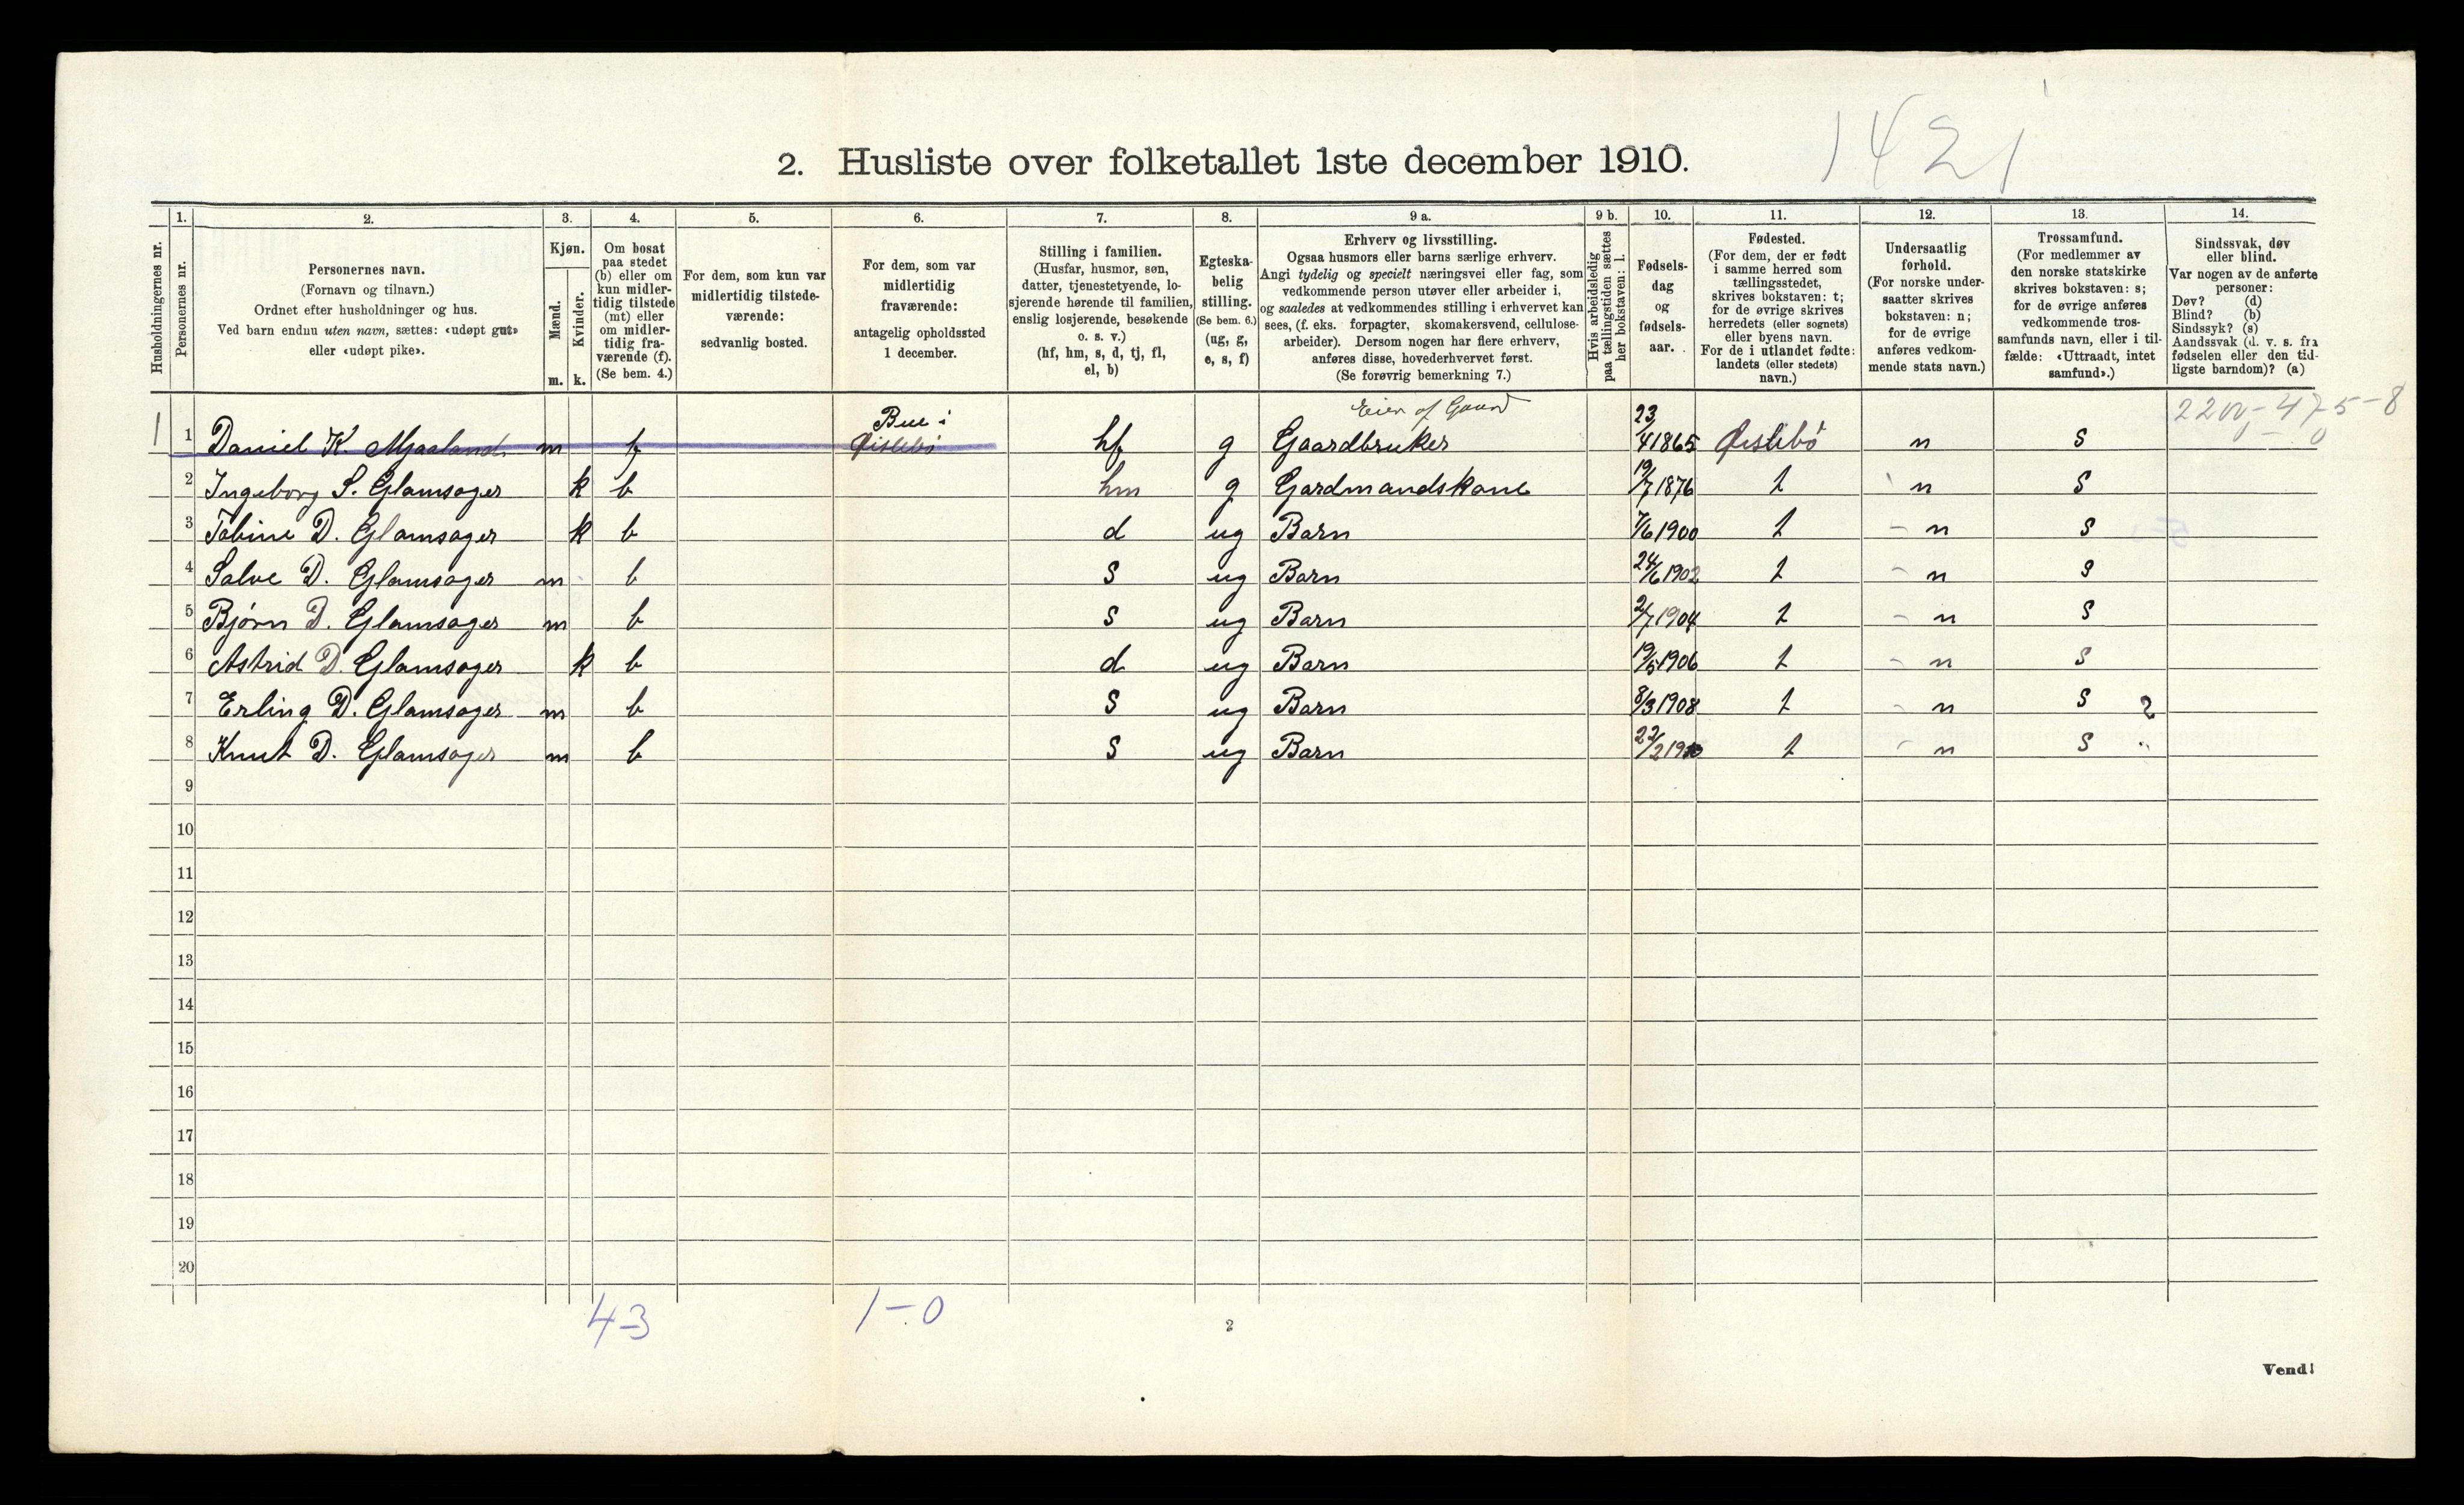 1421
2. Husliste over folketallet 1ste december 1910.
Husholdningernes nr.
1. 2. 3. 4. 5. 6. 7. 8. 9 a. 9 b. 10. 11. 12. 13. 14.
Personernes nr.
Personernes navn.
(Fornavn og tilnavn.)
Ordnet efter husholdninger og hus.
Ved barn endnu uten navn, sættes: «udøpt gut»
eller «udøpt pike».
Kjøn.
Mænd.
Kvinder.
m. k.
Om bosat
paa stedet
(b) eller om
kun midler-
tidig tilstede
(mt) eller
om midler-
tidig fra-
værende (f).
(Se bem. 4.)
For dem, som kun var
midlertidig tilstede-
værende:
sedvanlig bosted.
For dem, som var
midlertidig
fraværende:
antagelig opholdssted
1 december.
Stilling i familien.
(Husfar, husmor, søn,
datter, tjenestetyende, lo-
sjerende hørende til familien,
enslig losjerende, besøkende
o. s. v.)
(hf, hm, s, d, tj, fl,
el, b)
Egteska-
belig
stilling.
(Se bem. 6.)
(ug, g,
e, s, f)
Erhverv og livsstilling.
Ogsaa husmors eller barns særlige erhverv.
Angi tydelig og specielt næringsvei eller fag, som
vedkommende person utøver eller arbeider i,
og saaledes at vedkommendes stilling i erhvervet kan
sees, (f. eks. forpagter, skomakersvend, cellulose-
arbeider). Dersom nogen har flere erhverv,
anføres disse, hovederhvervet først.
(Se forøvrig bemerkning 7.)
Hvis arbeidsledig
paa tællingstiden sættes
her bokstaven: l.
Fødsels-
dag
og
fødsels-
aar.
Fødested.
(For dem, der er født
i samme herred som
tællingsstedet,
skrives bokstaven: t;
for de øvrige skrives
herredets (eller sognets)
eller byens navn.
For de i utlandet fødte:
landets (eller stedets)
navn.)
Undersaatlig
forhold.
(For norske under-
saatter skrives
bokstaven: n;
for de øvrige
anføres vedkom-
mende stats navn.)
Trossamfund.
(For medlemmer av
den norske statskirke
skrives bokstaven: s;
for de øvrige anføres
vedkommende tros-
samfunds navn, eller i til-
fælde: «Uttraadt, intet
samfund».)
Sindssvak, døv
eller blind.
Var nogen av de anførte
personer:
Døv? (d)
Blind? (b)
Sindssyk? (s)
Aandssvak (d. v. s. fra
fødselen eller den tid-
ligste barndom)? (a)
Bue i Eier af Gaard
1 1 Daniel K. Mjaaland m f Øislebö hf g Gaardbruker 23/4 1865 Øislebö n S
2 Ingeborg S. Glamsager k b hm g Gardmandskone 19/7 1876 t n S
3 Tobine D. Glamsager k b d ug Barn 7/6 1900 t n S
4 Salve D. Glamsager m b S ug Barn 24/6 1902 t n S
5 Bjørn D. Glamsager m b S ug Barn 2/7 1904 t n S
6 Astrid D. Glamsager k b d ug Barn 19/5 1906 t n S
7 Erling D. Glamsager m b S ug Barn 8/3 1908 t n S 2
8 Knut D. Glamsager m b S ug Barn 22/2 1910 t n S
9
10
11
12
13
14
15
16
17
18
19
20
4-3 1-0
2
Vend!